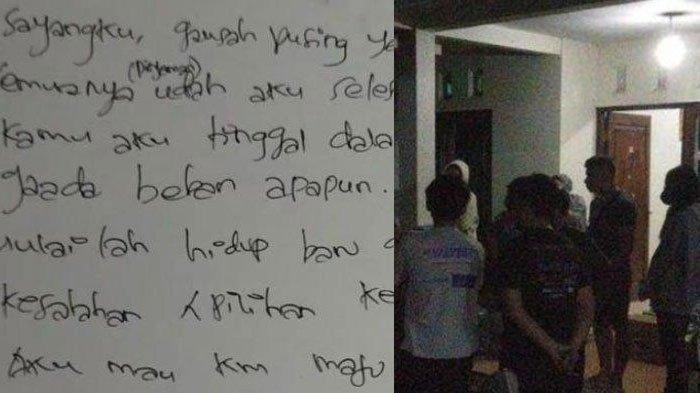 Sayangku, gausah pusing ya
semuanya (pinjaman) udah aku seles
Kamu aku tinggal dala
gaada beban apapun.
mulailah hidup baru
kesalahan / pilihan ke
Aku mau km maju